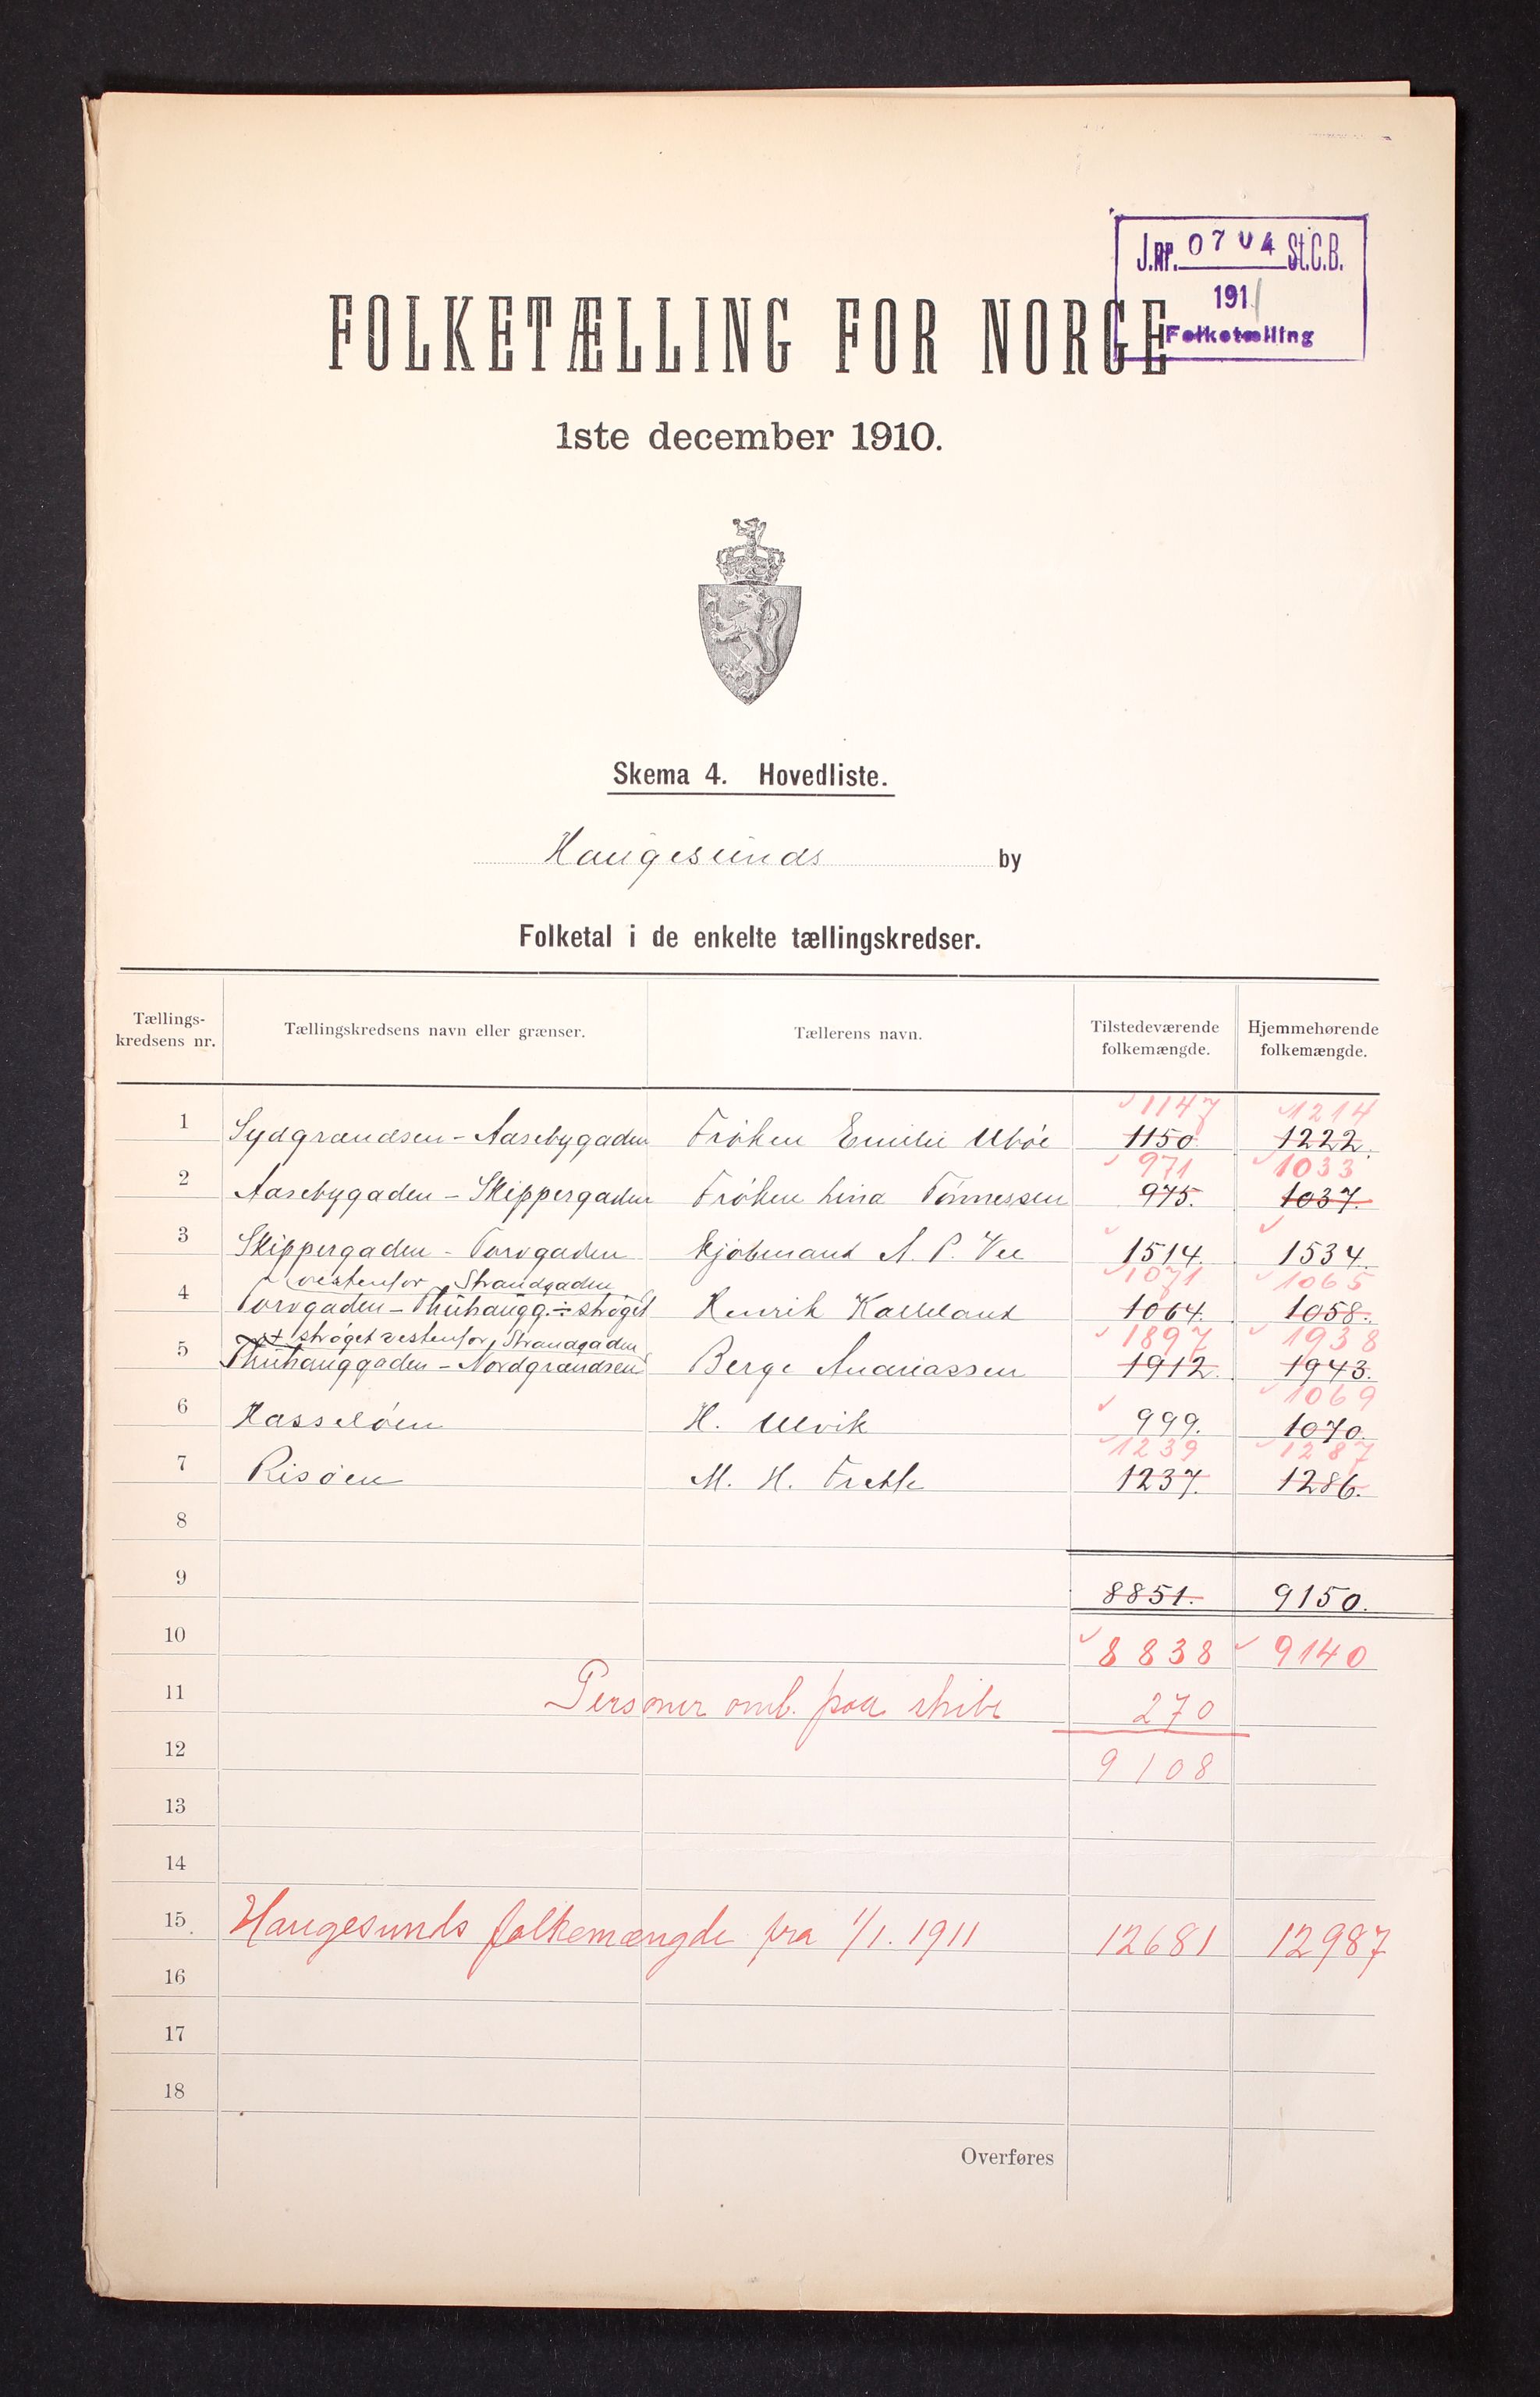 J.nr. 0704 St.C.B.
191
Folketælling
FOLKETÆLLING FOR NORGE
1ste december 1910.
Skema 4. Hovedliste.
Haugesunds by
Folketal i de enkelte tællingskredser.
Tællings-kredsens nr. Tællingskredsens navn eller grænser. Tællerens navn. Tilstedeværende folkemængde. Hjemmehørende folkemængde.
1147 1214
1 Sydgrændsen - Aasebygaden Frøken Emilie Ubøe 1150. 1222.
971 1033
2 Aasebygaden - Skippergaden Frøken Lina Tönnessen 975. 1037.
3 Skippergaden - Torvgaden Kjøbmand A. P. Vee 1514. 1534.
vestenfor Strandgaden 1071 1065
4 Torvgaden - Thuhaugg. ÷ strøget Henrik Kalleland 1064. 1058.
+ strøget vestenfor Strandgaden 1897 1938
5 Thuhauggaden - Nordgrændsen Berge Andreassen 1912. 1943.
1069
6 Hasseløen H. Ulvik 999. 1070.
1239 1287
7 Risøen M. H. Frette 1237. 1286.
8
9 8851. 9150.
10 8838 9140
11 Personer omb. paa skibe 270
12 9108
13
14
15 Haugesunds folkemængde fra 1/1. 1911 12681 12987
16
17
18
Overføres